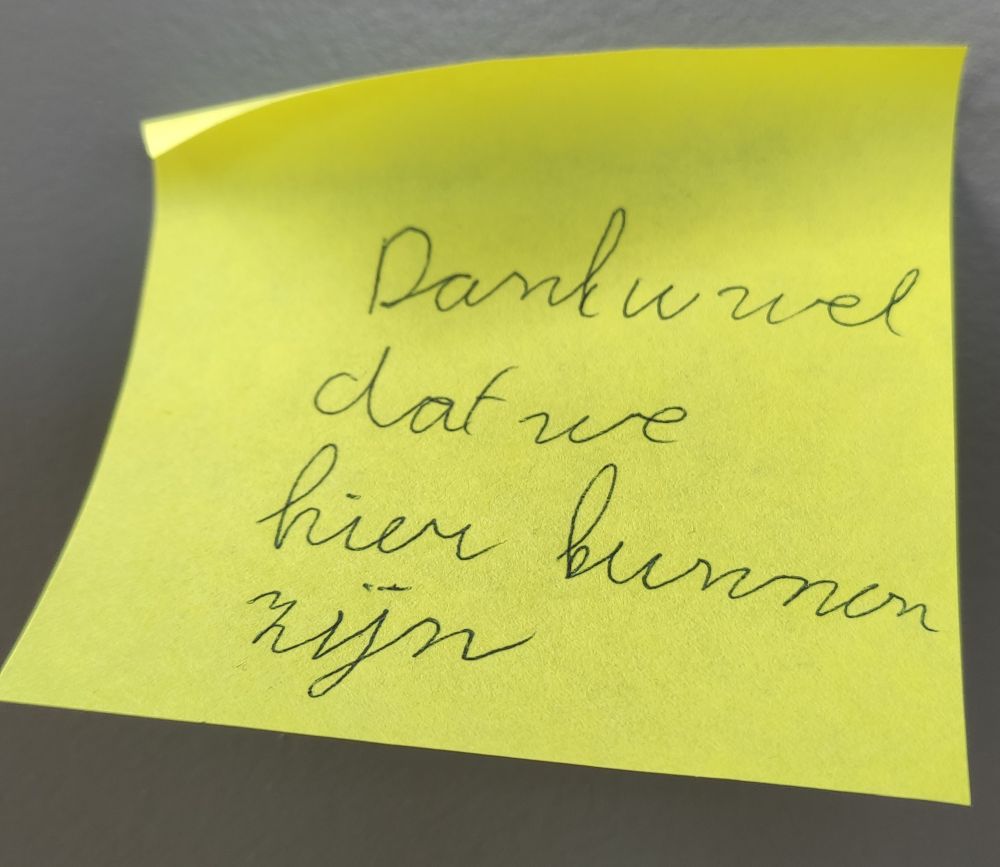 Dank u wel
dat we
hier kunnen
zijn